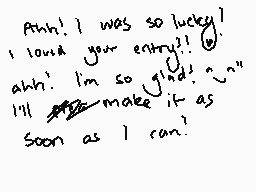 Ahh! I was so lucky!
I loved your entry!!
ahh! I'm so glad! ^_^"
I'll make it as
soon as I can!